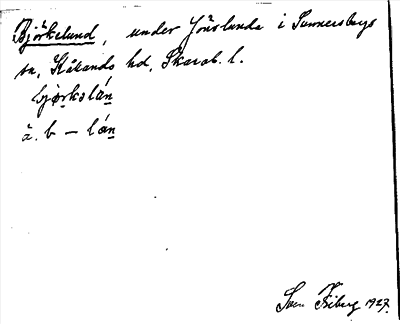 Björkelund, under Jönslunda i Sunnersbergs
sn, Kålands hd, Skarab. l.
bjørkəlán
ä. b – lán
Sven Friberg 1927.